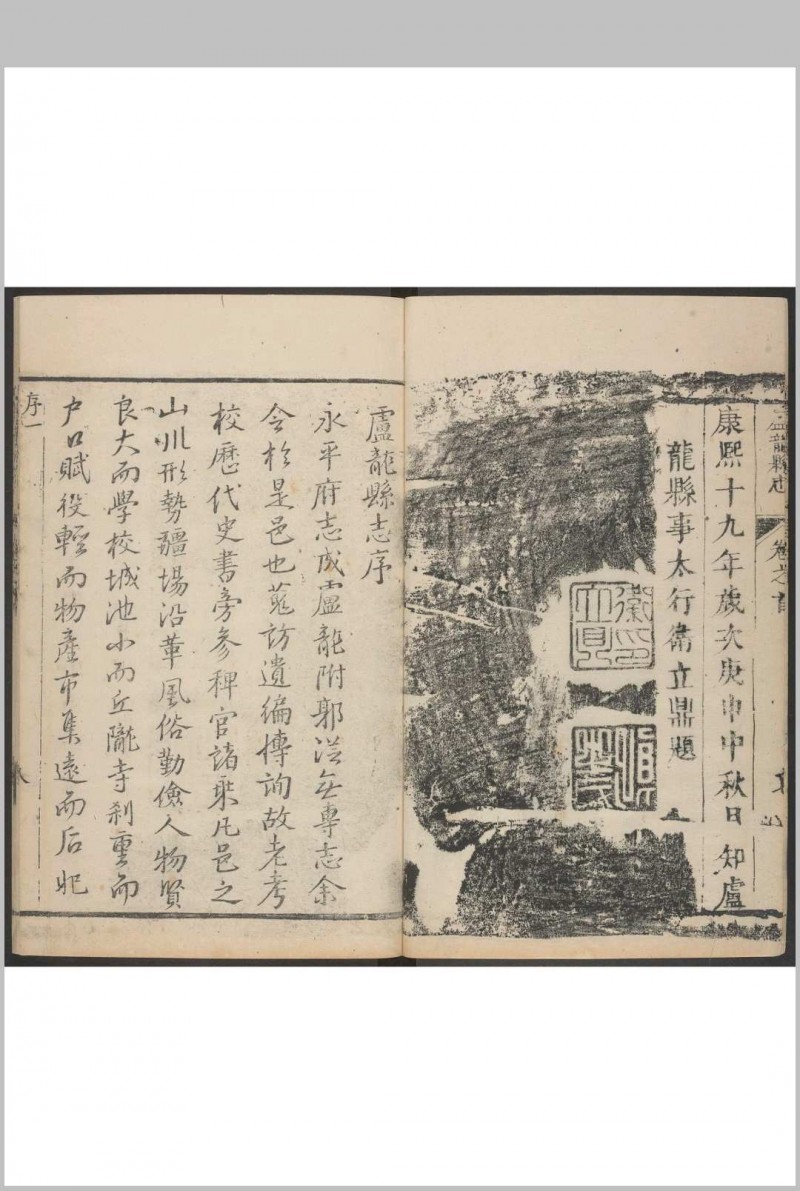 盧龍縣志
卷之首
康熙十九年歲次庚申中秋日知盧
龍縣事太行衞立鼎題
衞印
立鼎
盧龍縣志序
永平府志成盧龍附郭從無專志余
令於是邑也蒐訪遺編博詢故老考
校歷代史書旁參稗官諸乘凡邑之
山川形勢疆場沿革風俗勤儉人物賢
良大而學校城池小而丘隴寺刹重而
户口賦役輕而物產市集遠而后妃
序一